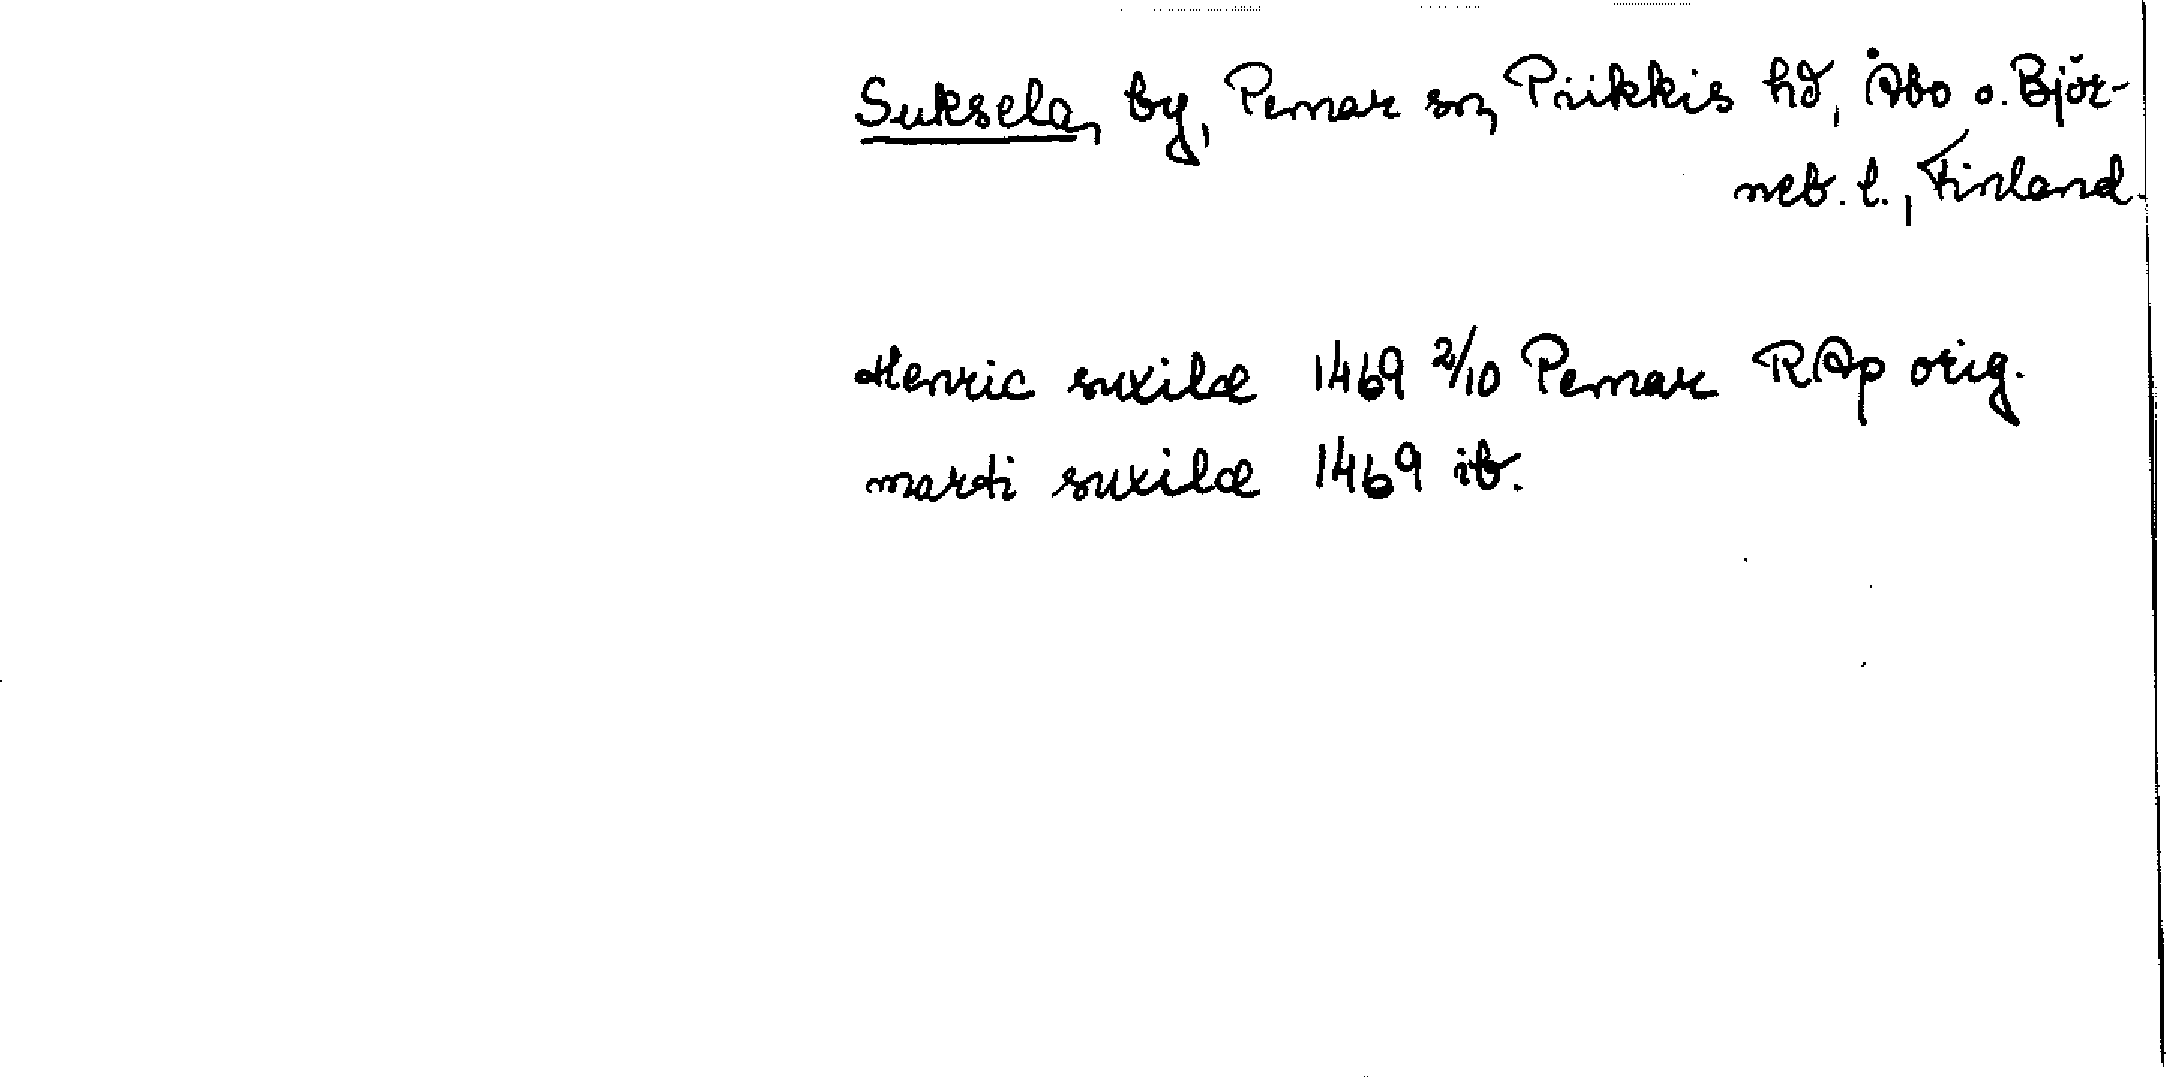 Suksela, by, Pemar sn, Piikkis hd, Åbo o. Björ-
neb. l., Finland.
Henric suxilæ 1469 2/10 Pemar RAp orig.
marti suxilæ 1469 ib.